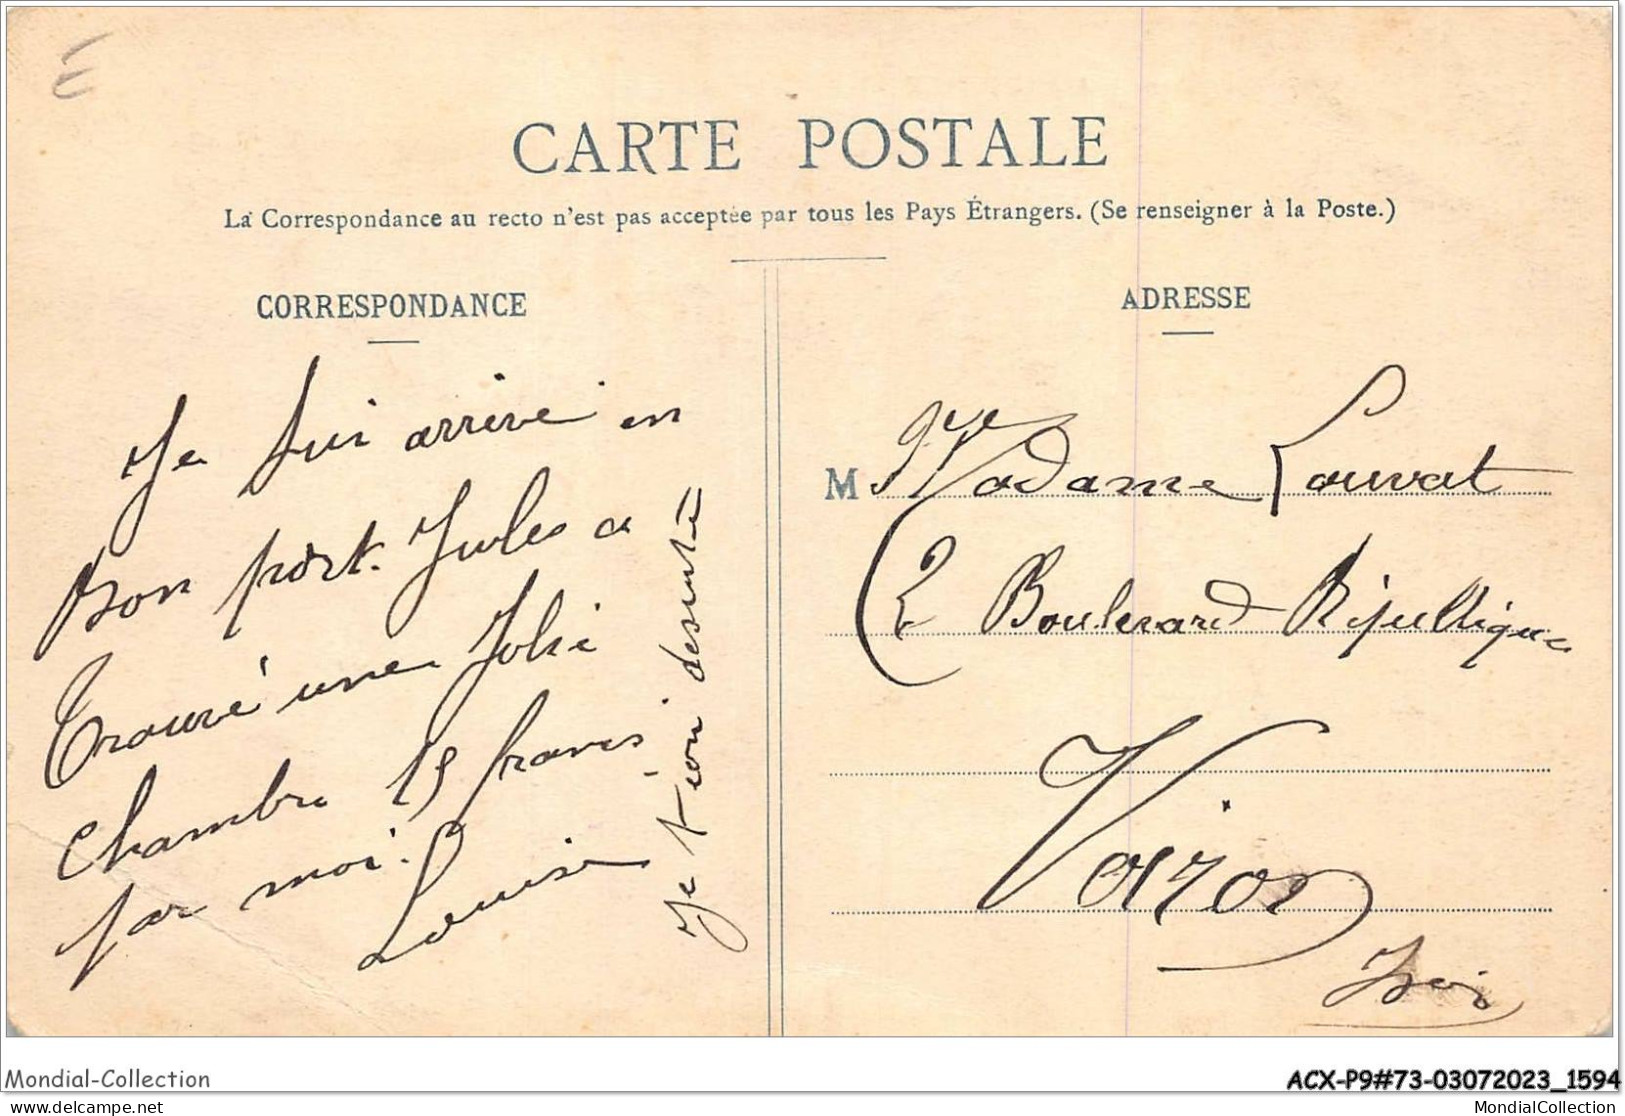 CARTE POSTALE
La Correspondance au recto n'est pas acceptée par tous les Pays Étrangers. (Se renseigner à la Poste.)
CORRESPONDANCE
Je sui arrivé en
Bon port. Jules a
trouvé une Jolie
chambre 15 francs
par moi.
Louise
Je
ADRESSE
M Madame Louvat
2 Boulevard République
Voiron
Mondial-Collection
ACX-P9#73-03072023_1594
delcampe.net
MondialCollection